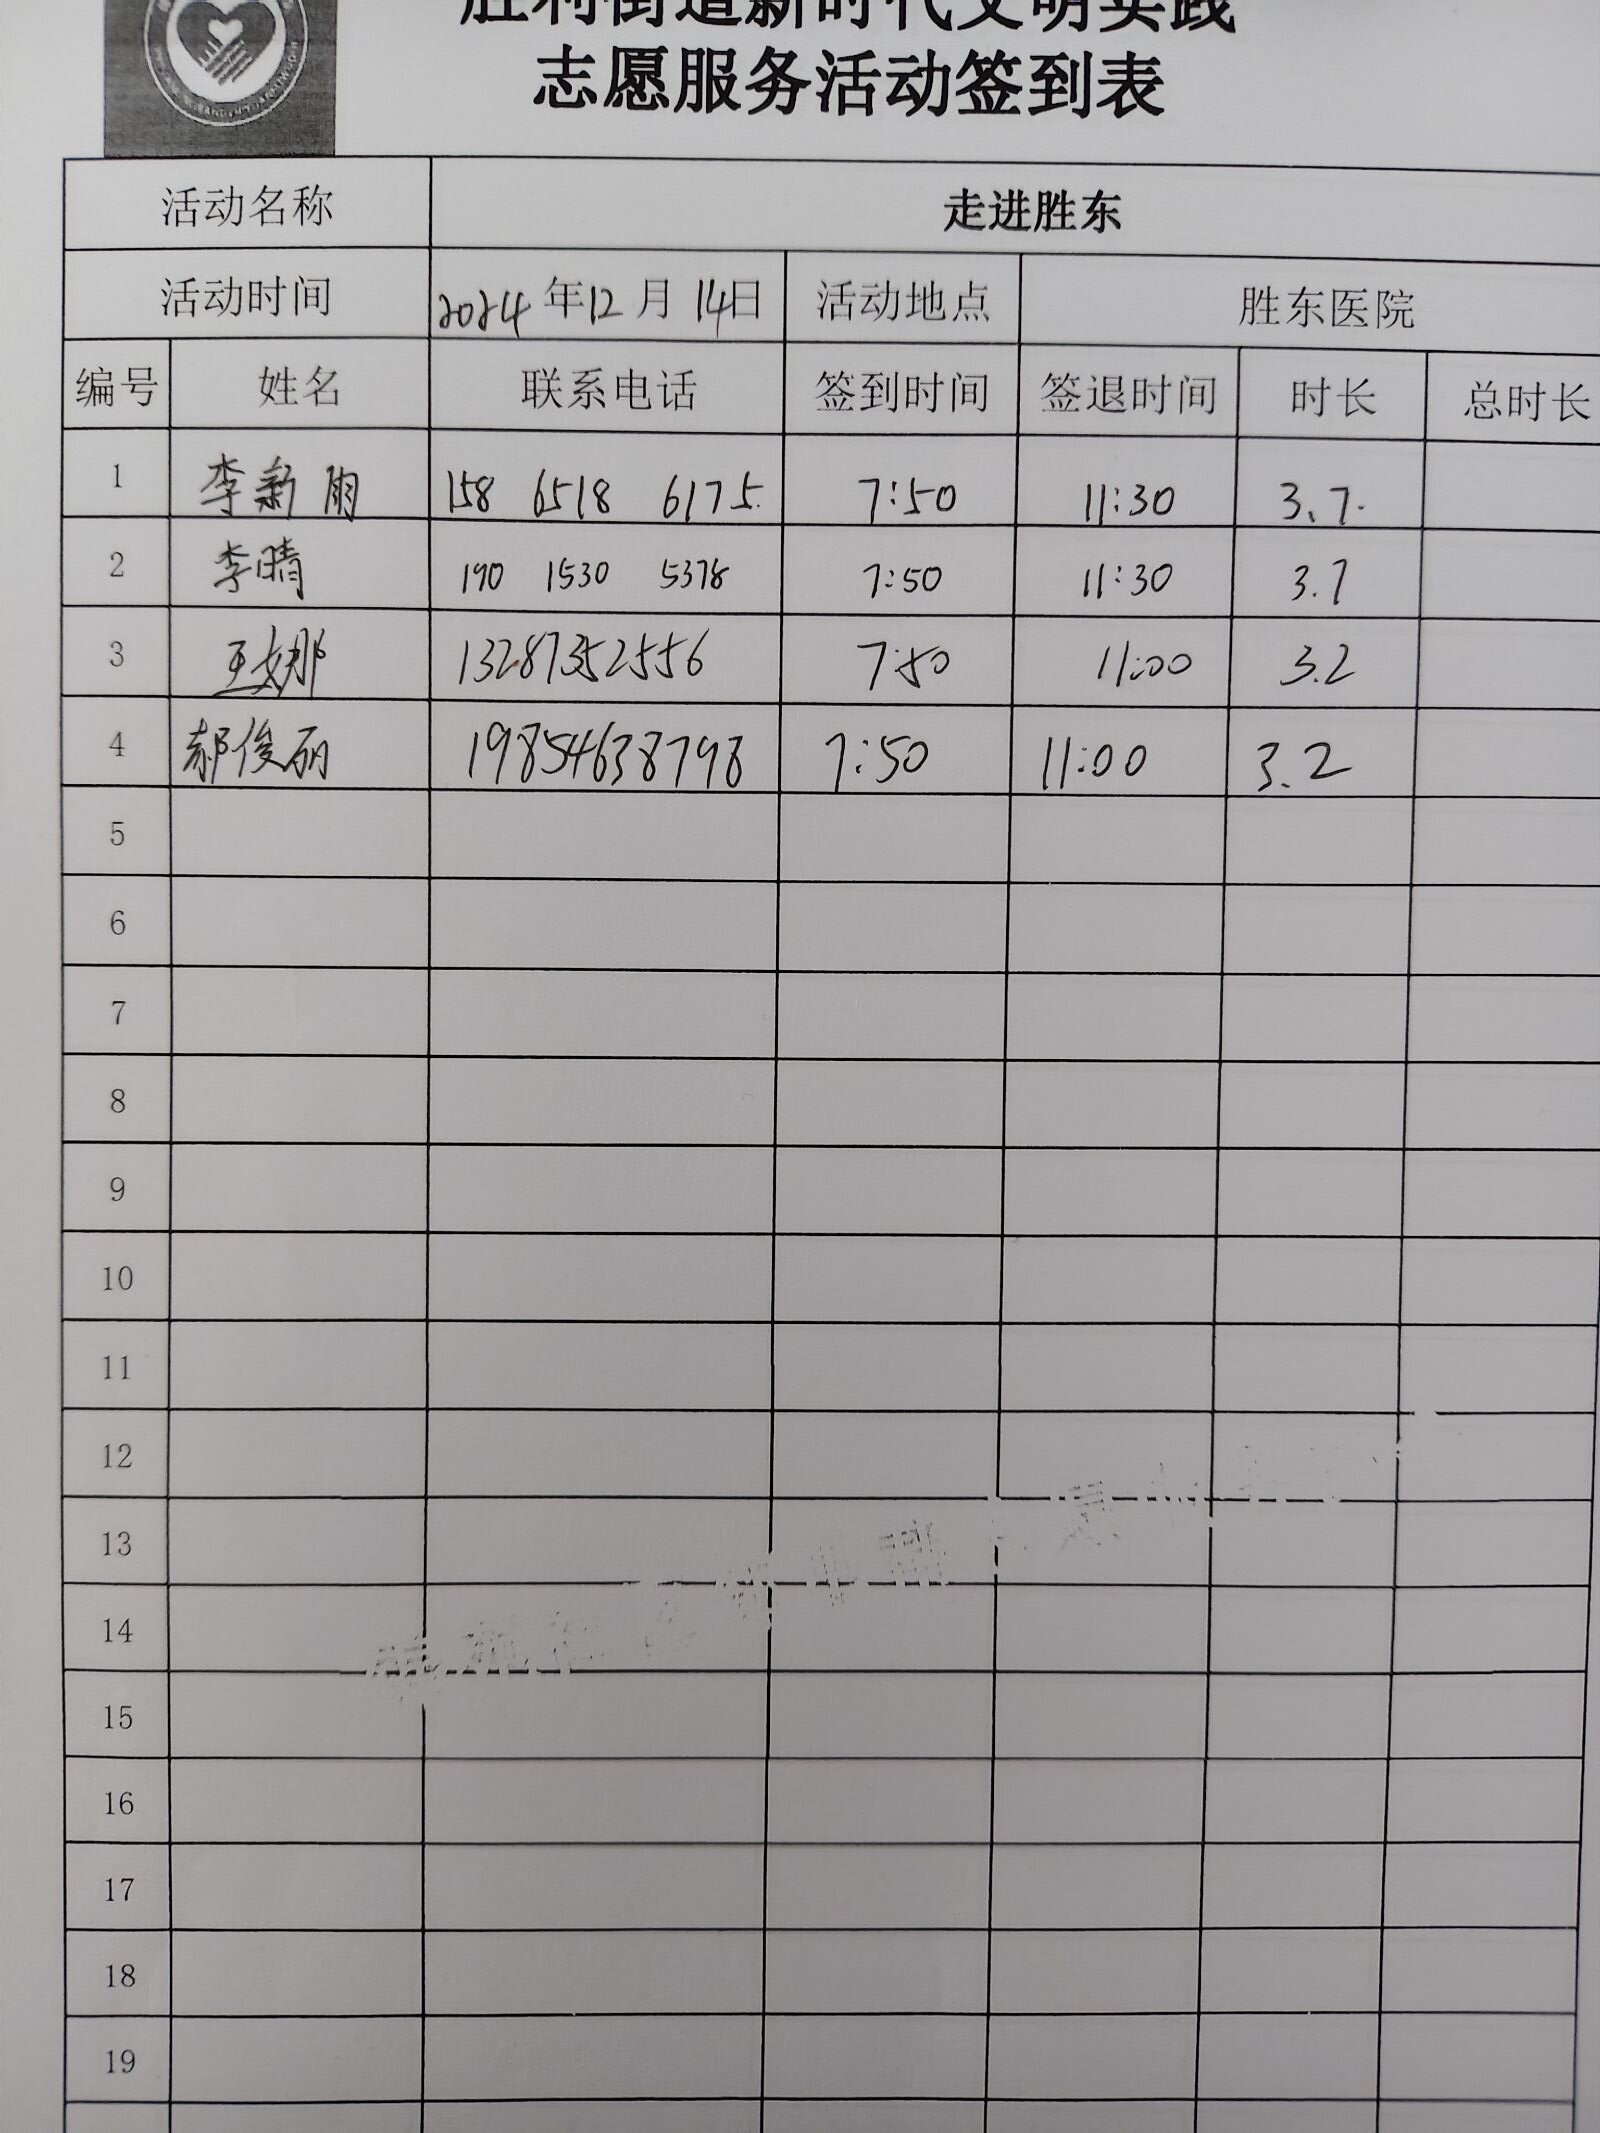 胜利街道新时代文明实践
志愿服务活动签到表
活动名称 走进胜东
活动时间 2024年12月14日 活动地点 胜东医院
编号 姓名 联系电话 签到时间 签退时间 时长 总时长
1 李新雨 158 6518 6175. 7:50 11:30 3.7.
2 李晴 190 1530 5378 7:50 11:30 3.7
3 王娜 13287352556 7:50 11:00 3.2
4 郝俊丽 19854638798 7:50 11:00 3.2
5
6
7
8
9
10
11
12
13
14
15
16
17
18
19